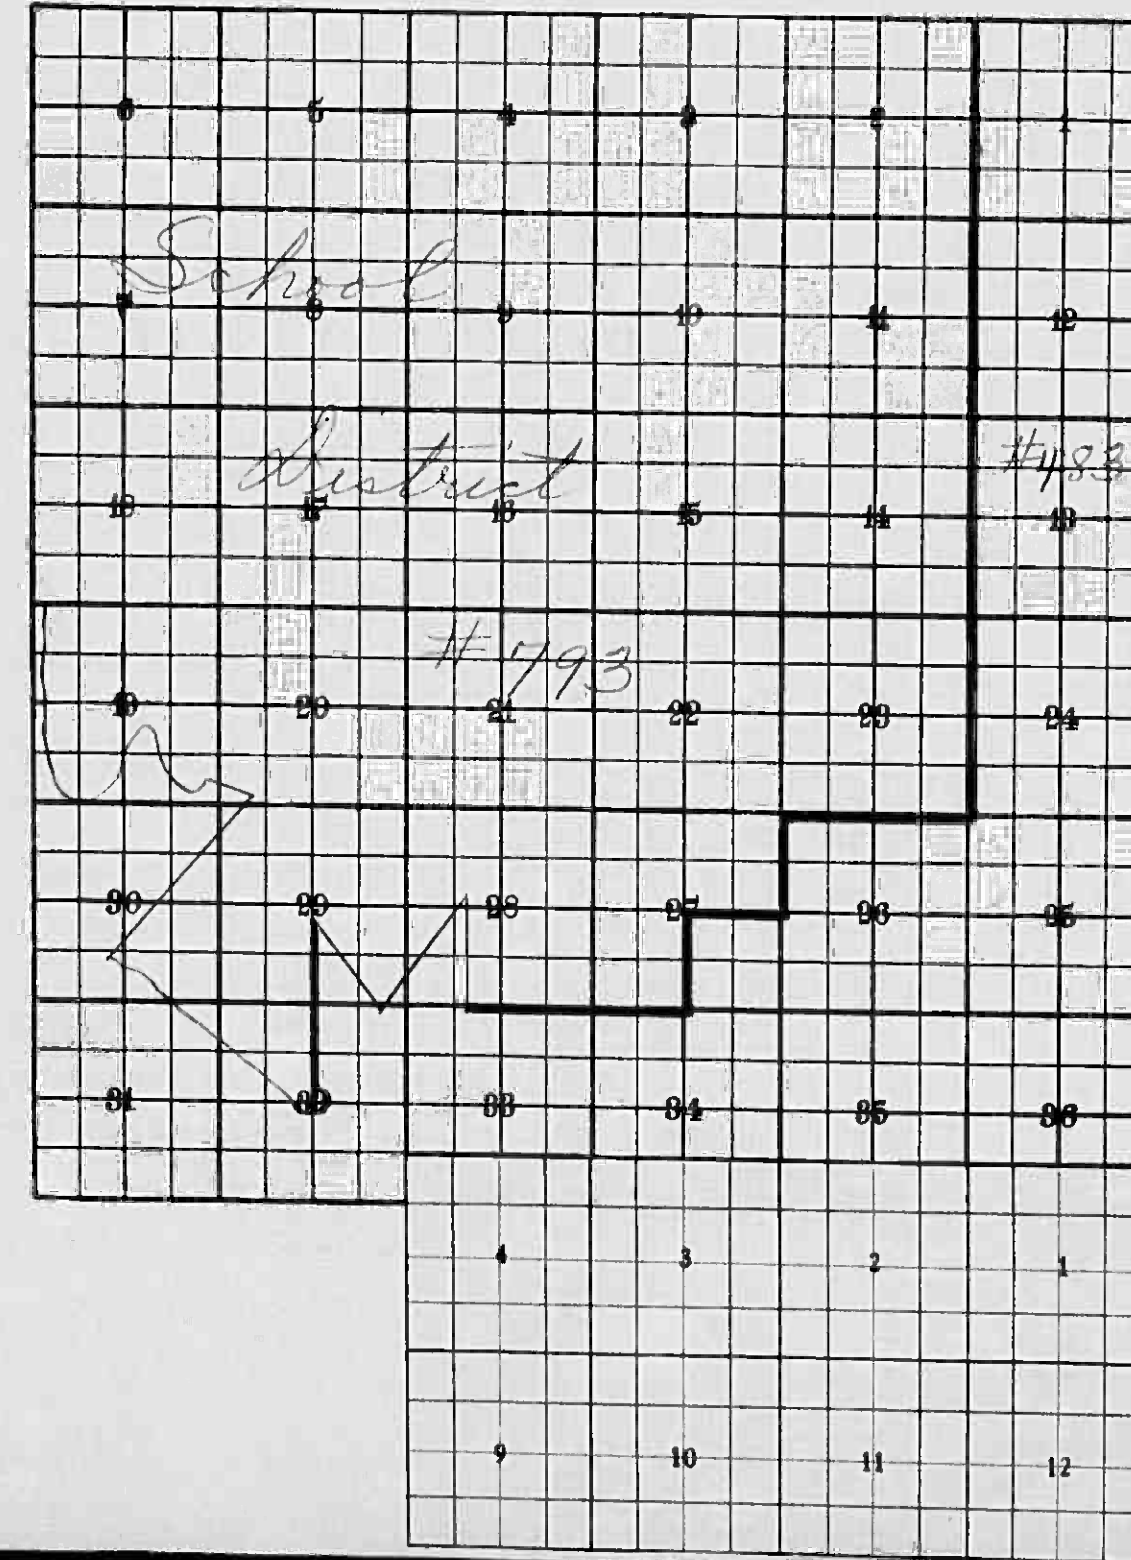 6 5 4 3 2 1
School
7 8 9 10 11 12
District #483
18 17 16 15 14 13
#793
19 20 21 22 23 24
30 29 28 27 26 25
31 32 33 34 35 36
4 3 2 1
9 10 11 12